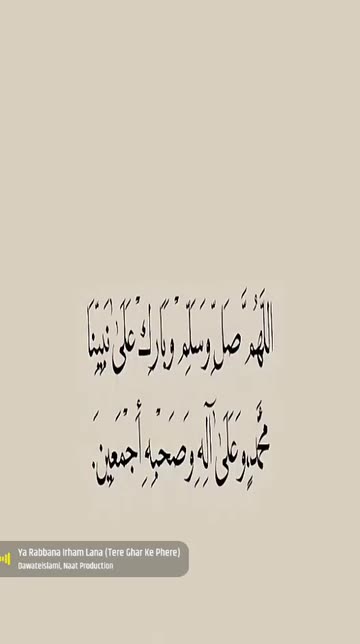 اللَّهُمَّ صَلِّ وَسَلِّمْ وَبَارِكْ عَلَىٰ نَبِيِّنَا
مُحَمَّدٍ وَعَلَىٰ آلِهِ وَصَحْبِهِ أَجْمَعِينَ.
Ya Rabbana Irham Lana (Tere Ghar Ke Phere)
Dawateislami, Naat Production